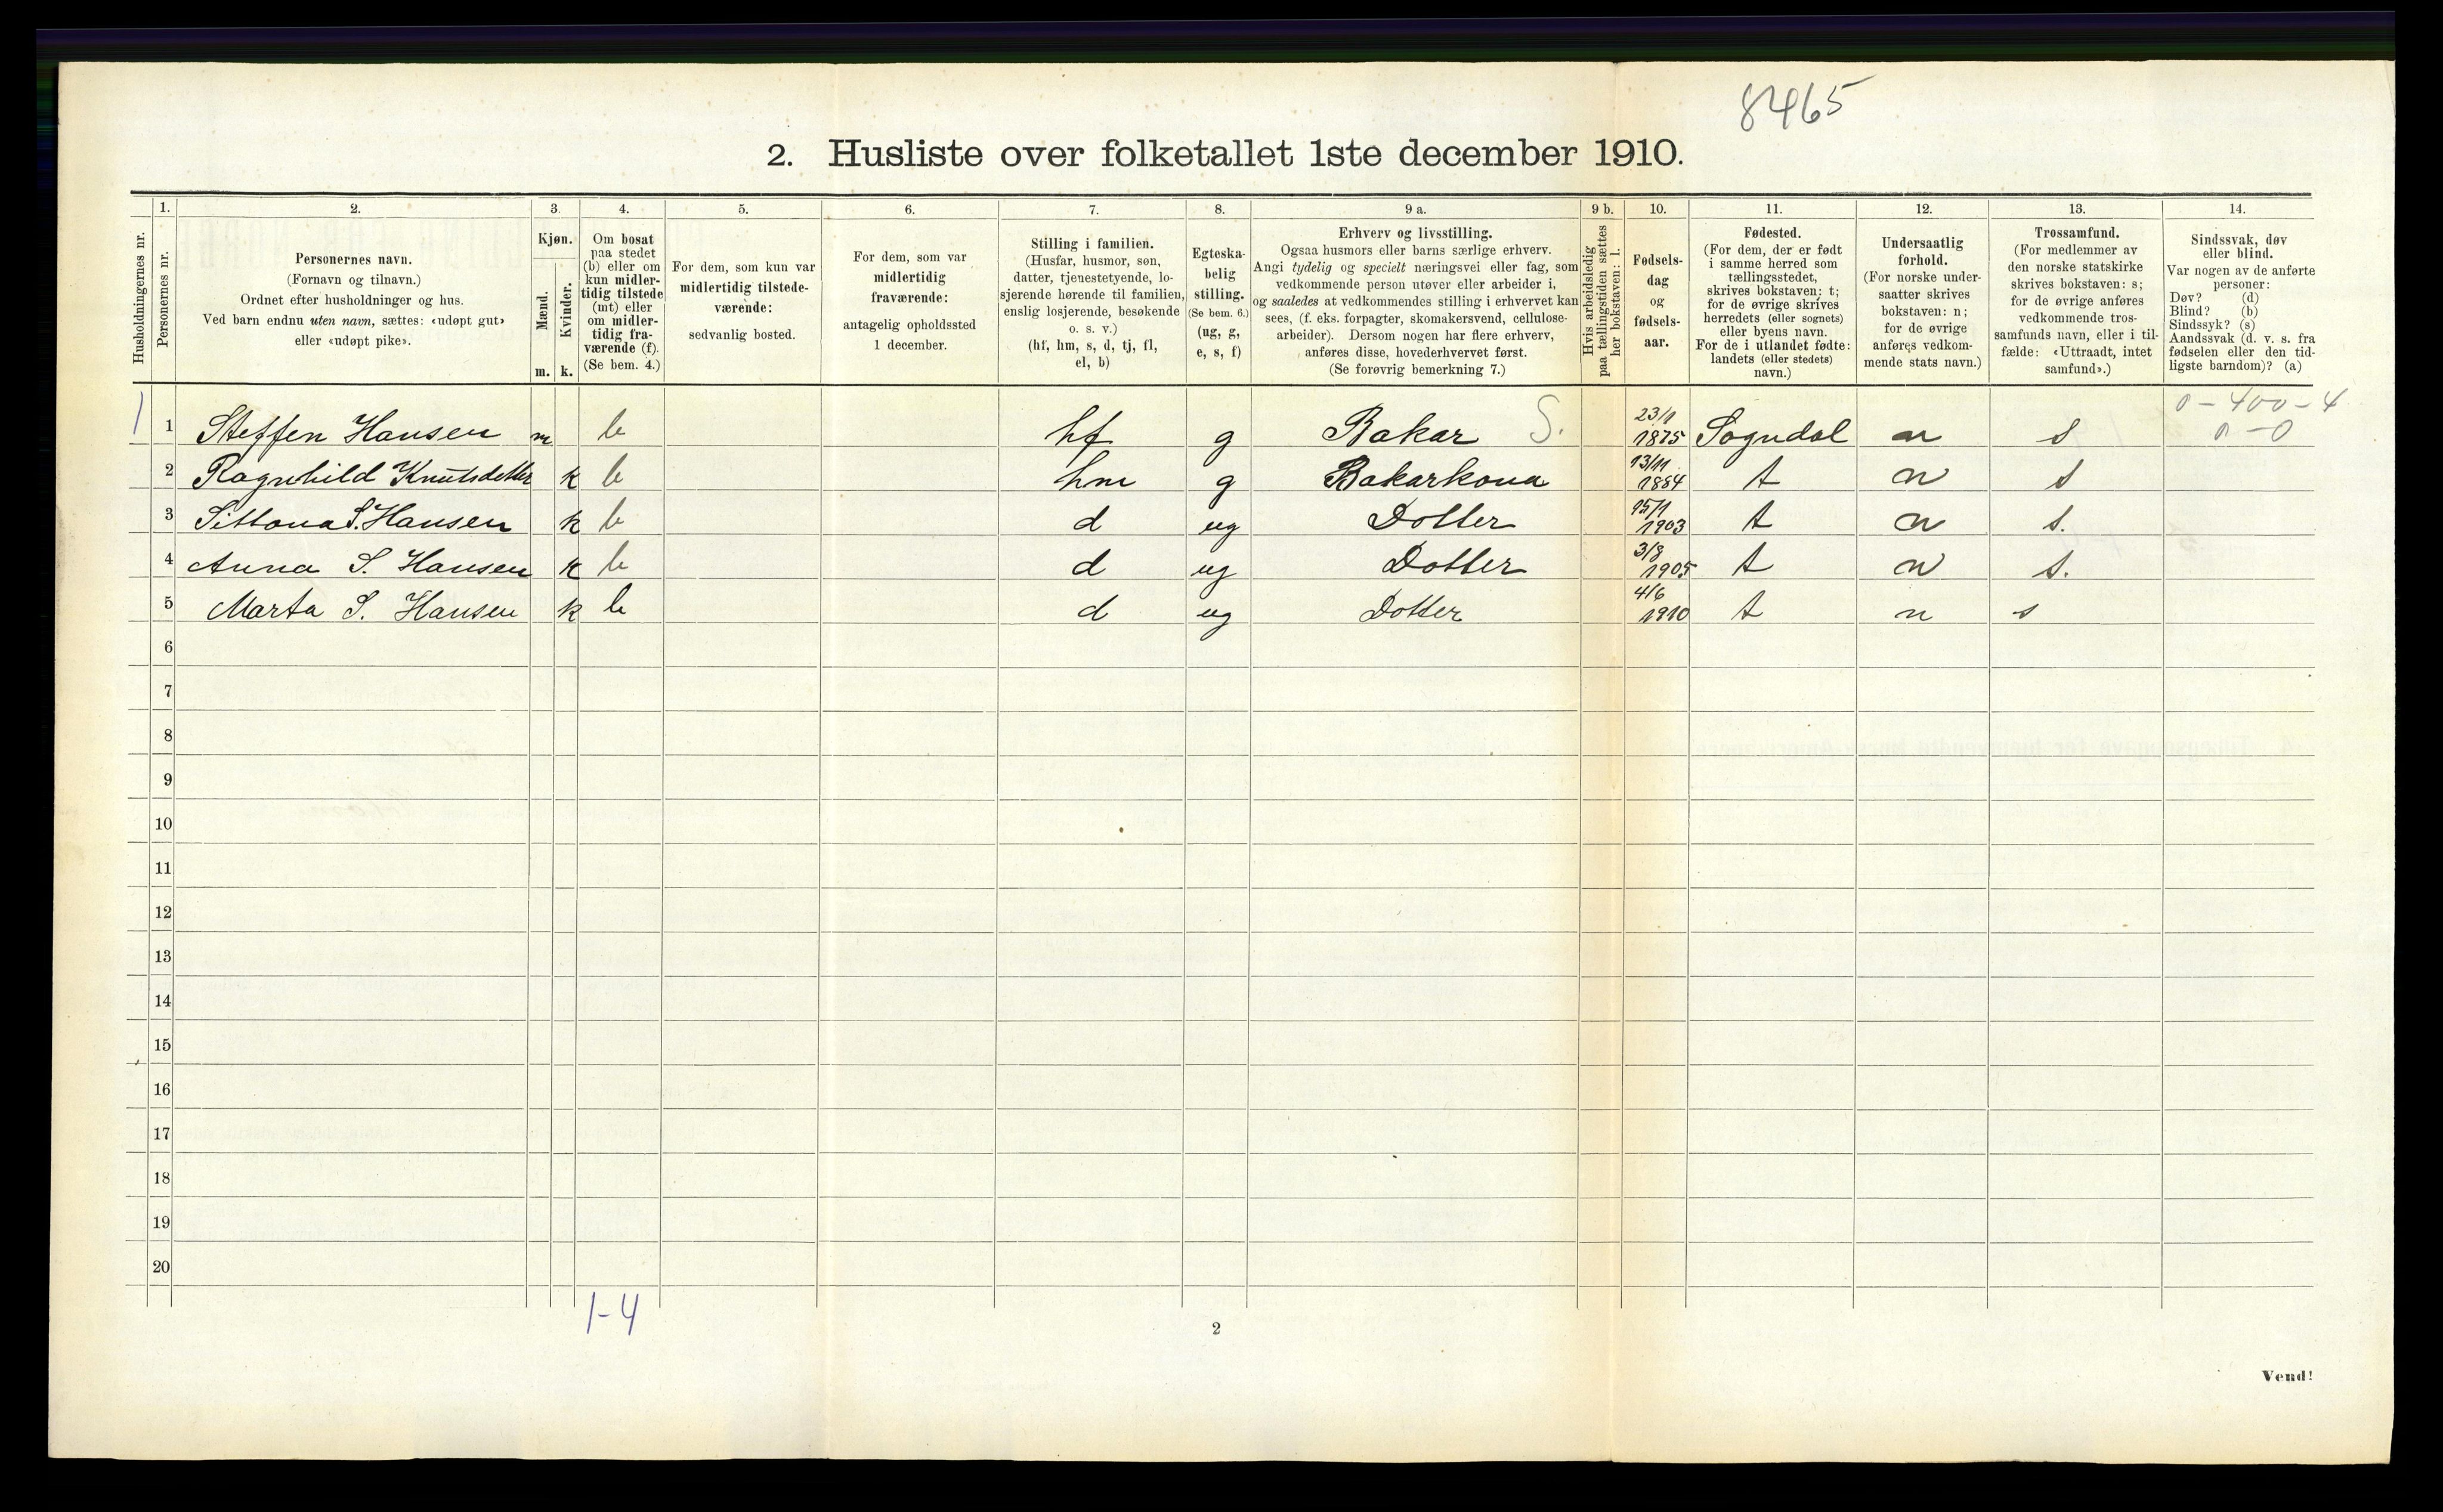 8465
2. Husliste over folketallet 1ste december 1910.
1. 2. 3. 4. 5. 6. 7. 8. 9 a. 9 b. 10. 11. 12. 13. 14.
Husholdningernes nr.
Personernes nr.
Personernes navn.
(Fornavn og tilnavn.)
Ordnet efter husholdninger og hus.
Ved barn endnu uten navn, sættes: «udøpt gut»
eller «udøpt pike».
Kjøn.
Mænd.
Kvinder.
m. k.
Om bosat
paa stedet
(b) eller om
kun midler-
tidig tilstede
(mt) eller
om midler-
tidig fra-
værende (f).
(Se bem. 4.)
For dem, som kun var
midlertidig tilstede-
værende:
sedvanlig bosted.
For dem, som var
midlertidig
fraværende:
antagelig opholdssted
1 december.
Stilling i familien.
(Husfar, husmor, søn,
datter, tjenestetyende, lo-
sjerende hørende til familien,
enslig losjerende, besøkende
o. s. v.)
(hf, hm, s, d, tj, fl,
el, b)
Egteska-
belig
stilling.
(Se bem. 6.)
(ug, g,
e, s, f)
Erhverv og livsstilling.
Ogsaa husmors eller barns særlige erhverv.
Angi tydelig og specielt næringsvei eller fag, som
vedkommende person utøver eller arbeider i,
og saaledes at vedkommendes stilling i erhvervet kan
sees, (f. eks. forpagter, skomakersvend, cellulose-
arbeider). Dersom nogen har flere erhverv,
anføres disse, hovederhvervet først.
(Se forøvrig bemerkning 7.)
Hvis arbeidsledig
paa tællingstiden sættes
her bokstaven: l.
Fødsels-
dag
og
fødsels-
aar.
Fødested.
(For dem, der er født
i samme herred som
tællingsstedet,
skrives bokstaven: t;
for de øvrige skrives
herredets (eller sognets)
eller byens navn.
For de i utlandet fødte:
landets (eller stedets)
navn.)
Undersaatlig
forhold.
(For norske under-
saatter skrives
bokstaven: n;
for de øvrige
anføres vedkom-
mende stats navn.)
Trossamfund.
(For medlemmer av
den norske statskirke
skrives bokstaven: s;
for de øvrige anføres
vedkommende tros-
samfunds navn, eller i til-
fælde: «Uttraadt, intet
samfund».)
Sindssvak, døv
eller blind.
Var nogen av de anførte
personer:
Døv? (d)
Blind? (b)
Sindssyk? (s)
Aandssvak (d. v. s. fra
fødselen eller den tid-
ligste barndom)? (a)
0 - 400 - 4
0 - 0
1 1 Steffen Hansen m b hf g Bakar S. 23/1 1875 Sogndal n s
2 Ragnhild Knutsdotter k b hm g Bakarkona 13/11 1884 t n s
3 Sittona S. Hansen k b d ug Dotter 15/1 1903 t n s.
4 Anna S. Hansen k b d ug Dotter 3/8 1905 t n s.
5 Marta S. Hansen k b d ug Dotter 4/6 1910 t n s
6
7
8
9
10
11
12
13
14
15
16
17
18
19
20
1-4
2
Vend!